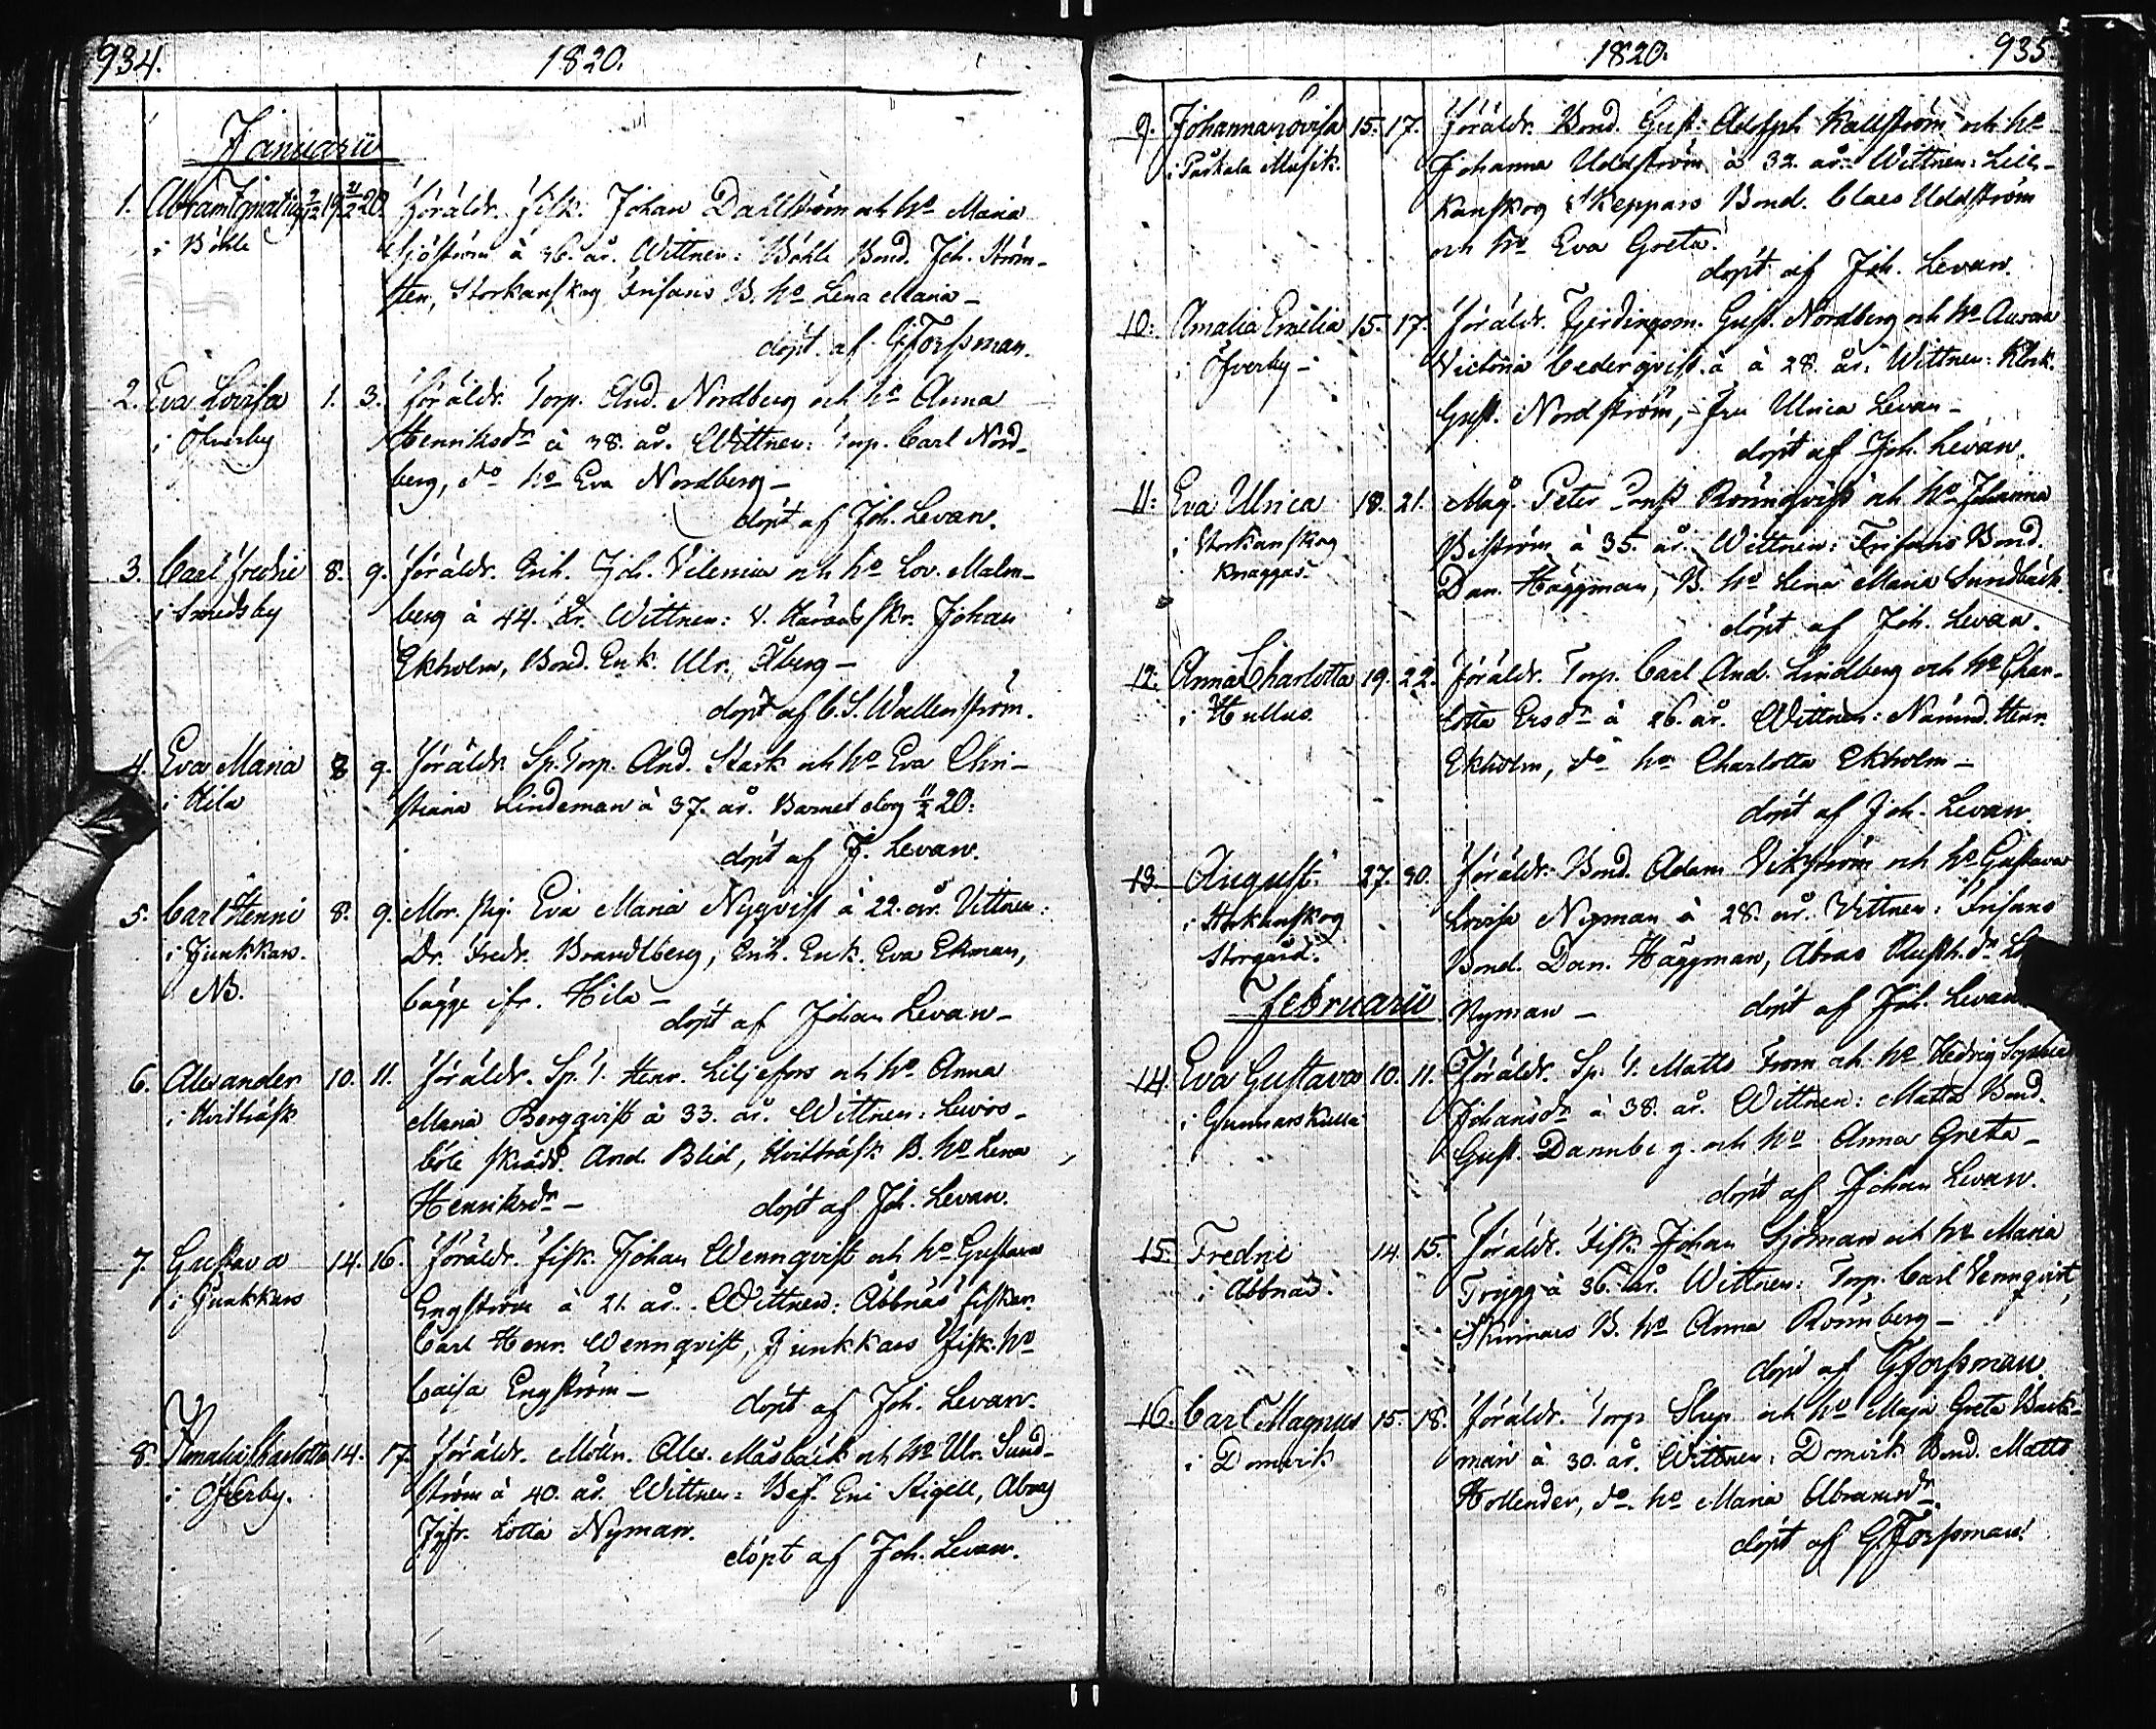 934. 1820.
Januarii
1. Abram Ignatius 7/12 19. 21/2 20. Föräldr. Fisk. Johan Dahlström och ho Maria
i Böhle Sjöström à 36. år. Wittnen: Böhle Bond. Joh. Ström-
sten, Storkanskog Frisans B. ho Lena Maria –
döpt af GForssman.
2. Eva Lovisa 1. 3. Föräldr. Torp. And. Nordberg och ho Anna
i Öfverby Henriksdr à 38. år. Wittnen: Torp. Carl Nord-
berg, do ho Eva Nordberg –
döpt af Joh. Levan.
3. Carl Fredric 8. 9. Föräldr. Enh. Joh. Vilenius och ho Lov. Malm-
i Smedsby berg à 44. år. Wittnen: V. Häradsskr. Johan
Ekholm, Bond. Enk. Ulr. Åberg –
döpt af C. S. Wallenström.
4. Eva Maria 8 9. Föräldr. Sp. Torp. And. Stark och ho Eva Chri-
i Hila stiana Lindeman à 37. år. Barnet dog 11/2 20:
döpt af J. Levan.
5. Carl Henric 8. 9. Mor. pig. Eva Maria Nyqvist à 22. år. Vittnen:
i Junkkars. Dr. Fredr. Brandtberg, Enh. Enk. Eva Ekman,
NB. bägge ifr. Hila –
döpt af Johan Levan –
6. Alexander 10. 11. Föräldr. Sp. T. Henr. Liljefors och ho Anna
i Hvitträsk Maria Bergqvist à 33. år. Wittnen: Levös-
böle skrädd. And. Blid, Hvitträsk B. ho Lena
Henriksdr – döpt af Joh. Levan.
7. Gustava 14. 16. Föräldr. Fisk. Johan Wennqvist och ho Gustava
i Junkkars Engström à 21. år. Wittnen: Åbbnäs fiskar.
Carl Henr. Wennqvist, Junkkars Fisk. ho
Caisa Engström – döpt af Joh. Levan.
8. Amalia Charlotta 14. 17. Föräldr. Möln. Alex. Måsbäck och ho Ulr. Sund-
i Öfverby. ström à 40. år. Wittnen: Bef. Eric Stigell, Abras
Jgfr. Lotta Nyman.
döpt af Joh. Levan.
1820. 935.
9. Johanna Lovisa 15. 17. Föräldr. Bond. Gust. Adolph Kallström och ho
Johanna Uddström à 32. år. Wittnen: Lill-
kanskog Skeppars Bond. Claes Uddström
och ho Eva Greta.
döpt af Joh. Levan.
10: Amalia Emilia 15. 17. Föräldr. Fjerdingsm. Gust. Nordberg och ho Aurora
i Öfverby – Victoria Cederqvist à 28. år. Wittnen: Klock.
Gust. Nordström, Fru Ulrica Levan –
döpt af Joh. Levan.
11: Eva Ulrica 18. 21. Måg. Peter Rönnqvist och ho Johanna
i Storkanskog Biström à 35. år. Wittnen: Frisans Bond.
Knaggas. Dan. Häggman, B. ho Lena Maria Sundbäck.
döpt af Joh. Levan.
12: Anna Charlotta 19. 22. Föräldr. Torp. Carl And. Lindberg och ho Char-
i Hullus. lotta Ersdr à 26. år. Wittnen: Nämnd. Henr.
Ekholm, do ho Charlotta Ekholm –
döpt af Joh. Levan.
13. August 27. 30. Föräldr. Bond. Adam Vikström och ho Gustava
i Storkanskog Lovisa Nyman à 28. år. Wittnen: Frisans
Storgård. Bond. Dan. Häggman, Abras Rusth. dr
Nyman – döpt af Joh. Levan
Februarii
14 Eva Gustava 10. 11. Föräldr. Sp. T. Matts From och ho Hedvig Sophia
i Gunnarskulla Johansdr à 38. år. Wittnen: Matts Bond.
Gust. Dannberg och ho Anna Greta –
döpt af Johan Levan.
15. Fredric 14. 15. Föräldr. Fisk. Johan Sjöman och ho Maria
i Åbbnäs. Trygg à 36. år. Wittnen: Torp. Carl Vennqvist,
Skinnars B. ho Anna Rönnberg –
döpt af GForssman.
16. Carl Magnus 15. 18. Föräldr. Torp. Slup och ho Maja Greta Back-
i Domvik man à 30. år. Wittnen: Domvik Bond. Matts
Hollender, do. ho Maria Abramsdr.
döpt af G. Forssman.